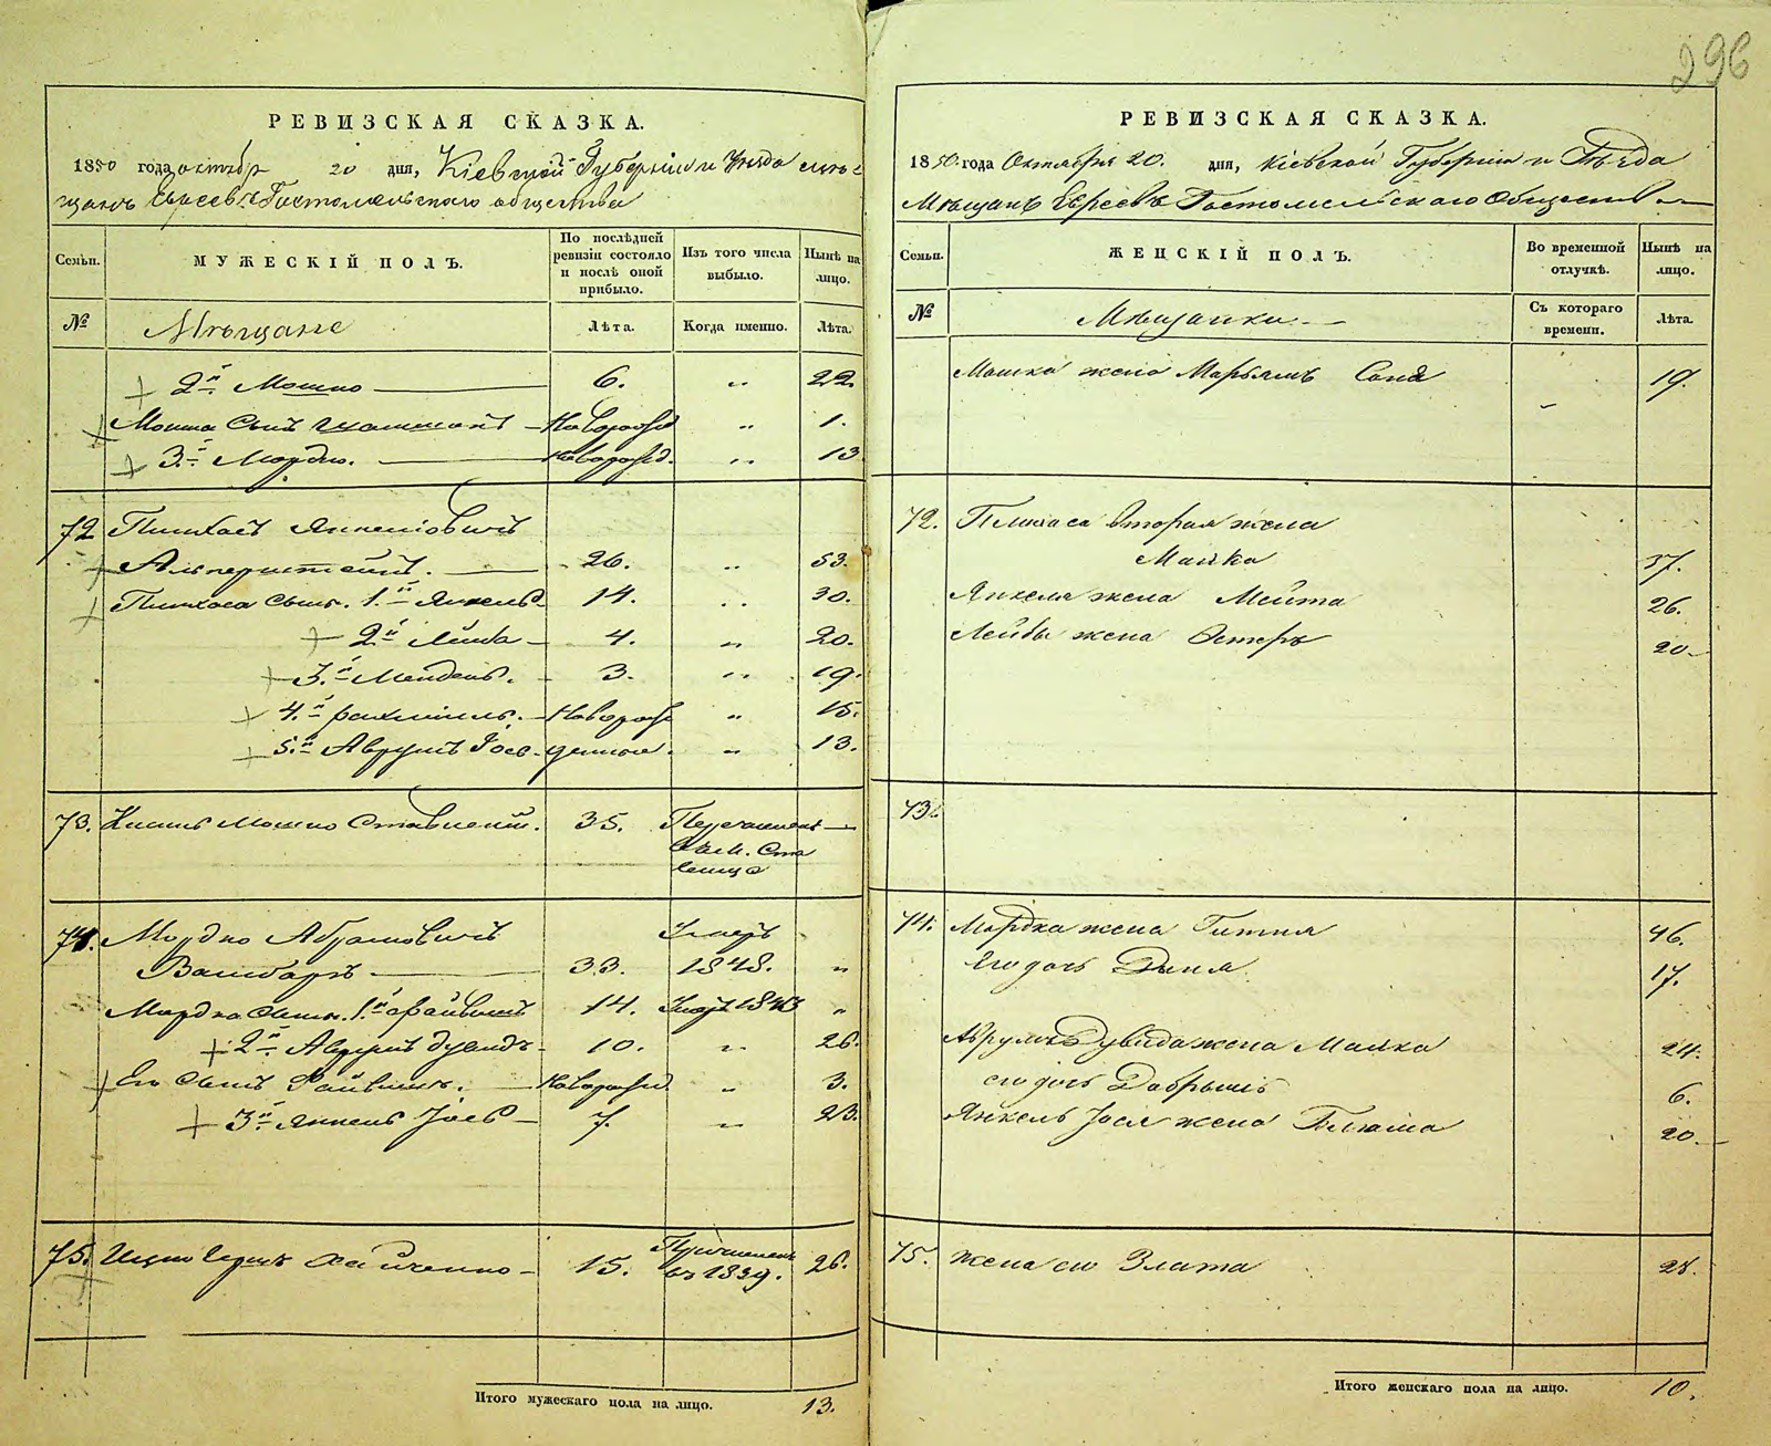 296
РЕВИЗСКАЯ СКАЗКА.
1850 года октября 20 дня, Кіевской Губерніи и Уезда мѣ=
щанъ Евреевъ Гостомельскаго общества
Семьи. МУЖЕСКІЙ ПОЛЪ. По послѣдней ревизіи состояло и послѣ оной прибыло. Изъ того числа выбыло. Нынѣ на лицо.
№ Мѣщане Лѣта. Когда именно. Лѣта.
2й Мошко 6. „ 22.
Мошка Сынъ Новорожд „ 1.
3й Мордко. Новорожд. „ 13
72 Пинхасъ Янкеліовичъ
Альперштейнъ. 26. „ 53.
Пинхаса сын. 1й Янкель 14. „ 30.
2й Лейба 4. „ 20.
3й Мендель. 3. „ 19.
4й Рахмиль. Новорож „ 15.
5й Аврумъ Іос денные. „ 13.
73. Мошко 35. Перечислен
74. Мордко Абрамовичъ Умеръ
33. 1848. „
Мордка сын. 1й Файвишъ 14. Умеръ „
2й Аврумъ Дувидъ 10. „ 26.
Его сынъ Файвишъ. Новорожд „ 3.
3й Янкель Іось 7. „ 23.
75. Ицко 15. Причислен
въ 1839. 26.
Итого мужескаго пола на лицо. 13.
РЕВИЗСКАЯ СКАЗКА.
1850 года Октября 20. дня, Кіевской Губерніи и Уѣзда
Мѣщанъ Евреевъ Гостомельскаго Общества
Семьи. ЖЕНСКІЙ ПОЛЪ. Во временной отлучкѣ. Нынѣ на лицо.
№ Мѣщанки Съ котораго времени. Лѣта.
Мошка жена Марьямъ 19.
72. Пинхаса вторая жена
Малка 37.
Янкеля жена Мейта 26.
Лейбы жена Эстеръ 20.
73.
74. Мордка жена Гитля 46.
Его дочь 17.
Аврумъ Дувида жена Малка 24.
его дочь Добрышъ 6.
Янкель Іося жена 20.
75. жена его Злата 28.
Итого женскаго пола на лицо. 10.